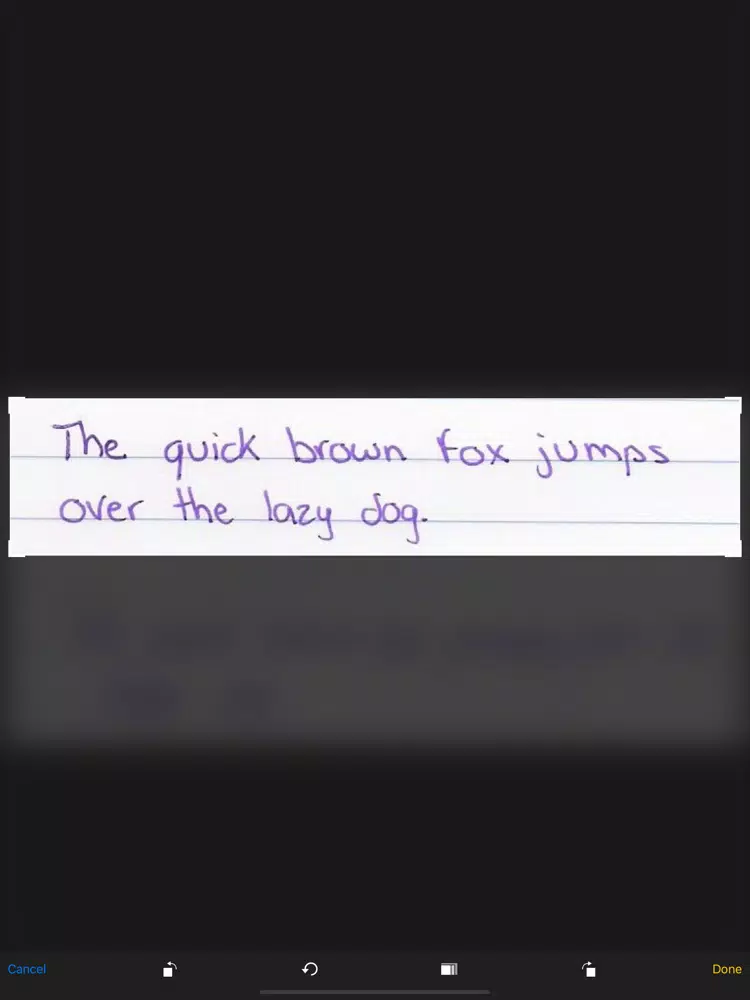 The quick brown fox jumps
over the lazy dog.
Cancel
Done